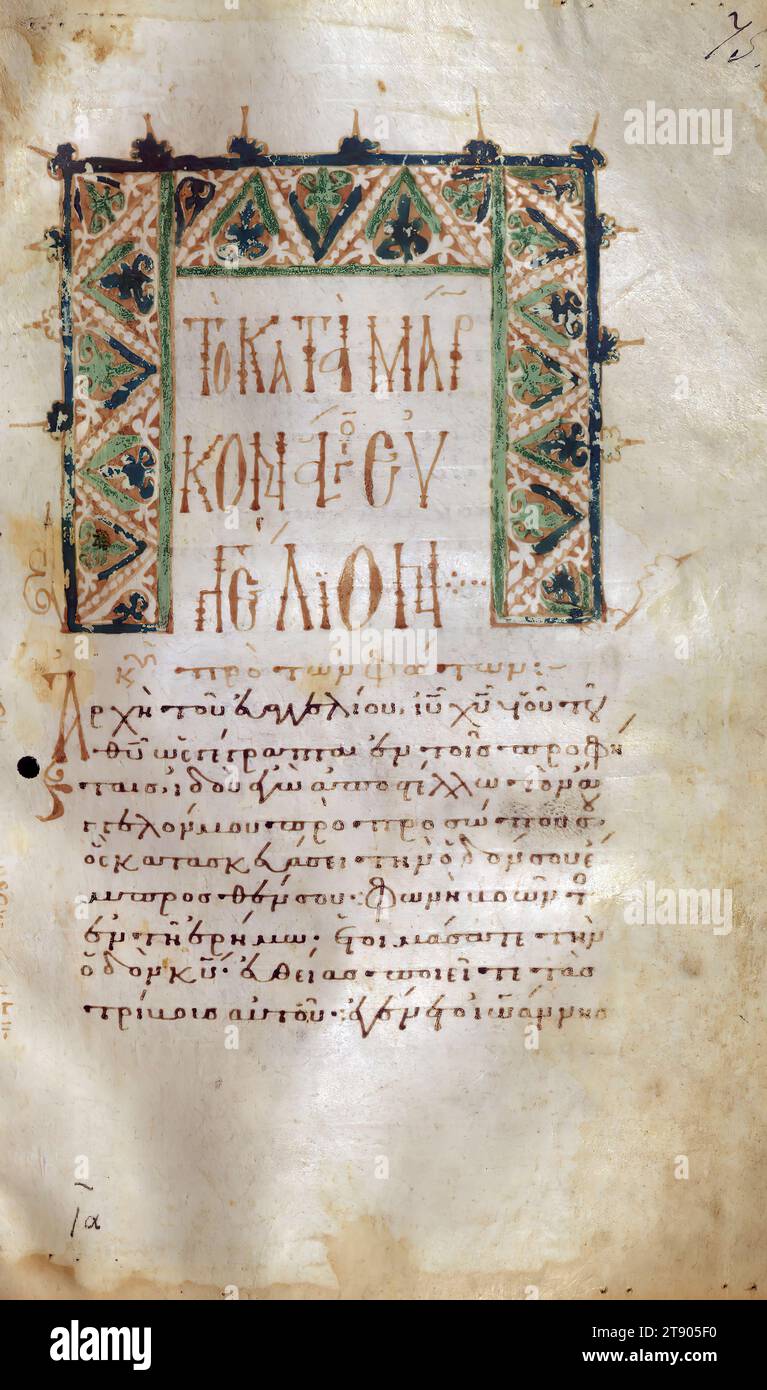 75.
τὸ κατὰ μάρ
κον ἅγιον εὐ
αγγέλιον
κυ πρὸ τῶν φώτων :
Ἀρχὴ τοῦ εὐαγγελίου ἰῦ χῦ υἱοῦ τοῦ
θῦ ὡς γέγραπται ἐν τοῖς προφή
ταις, ἰδοὺ ἐγὼ ἀποστέλλω τὸν ἄγ
γελόν μου πρὸ προσώπου σου
ὃς κατασκευάσει τὴν ὁδόν σου ἔ
μπροσθέν σου· φωνὴ βοῶντος
ἐν τῇ ἐρήμω· ἑτοιμάσατε τὴν
ὁδὸν κῦ· εὐθείας ποιεῖτε τὰς
τρίβους αὐτοῦ· ἐγένετο ἰωάννης
ια
alamy
Image ID: 2T905F0
www.alamy.com